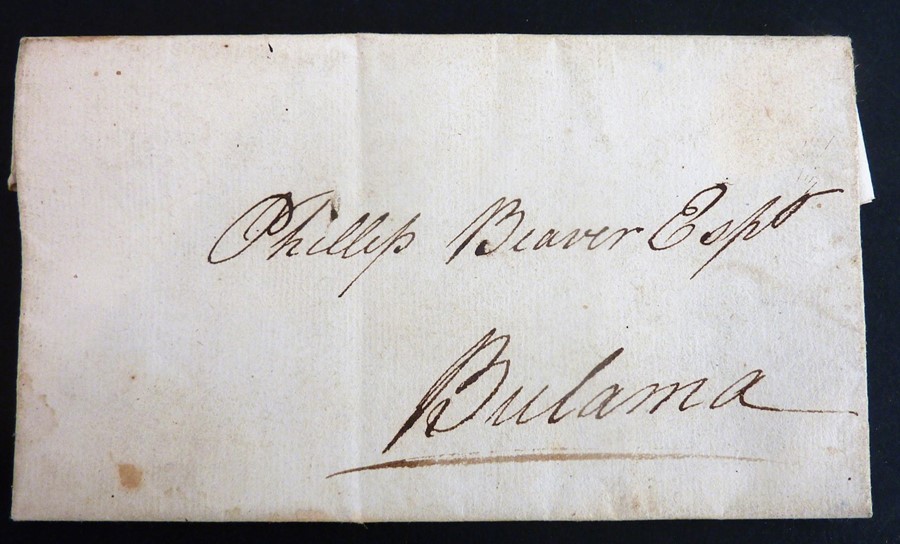 Phillip Beaver Esqr
Bulama